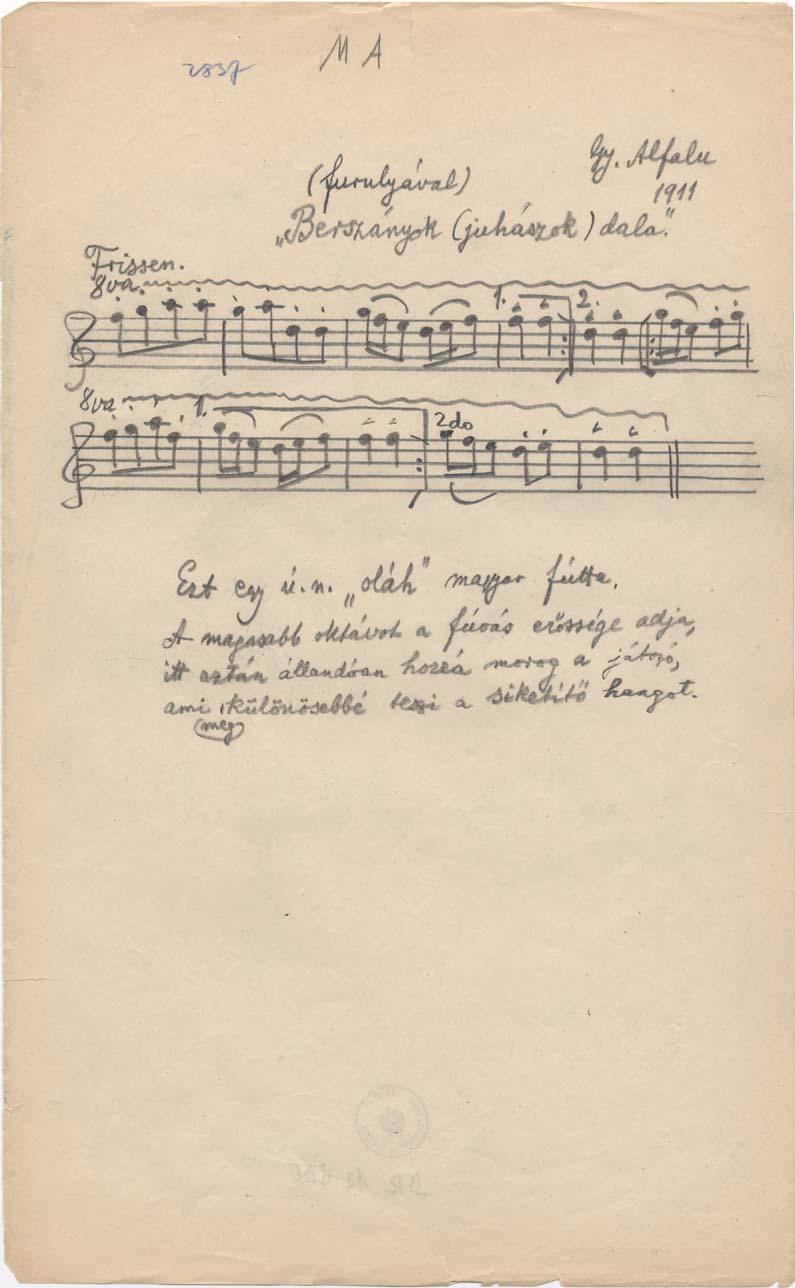 2837
M A
Gy. Alfalu
1911
(furulyával)
„Berszányok (juhászok) dala."
Frissen.
8va
1. 2.
8va 1.
2do
Ezt egy ú.n. „oláh" magyar fútta.
A magasabb oktávot a fúvás erőssége adja,
itt aztán állandóan hozzá morog a játszó,
ami különösebbé teszi a siketítő hangot.
(meg)
BR 12